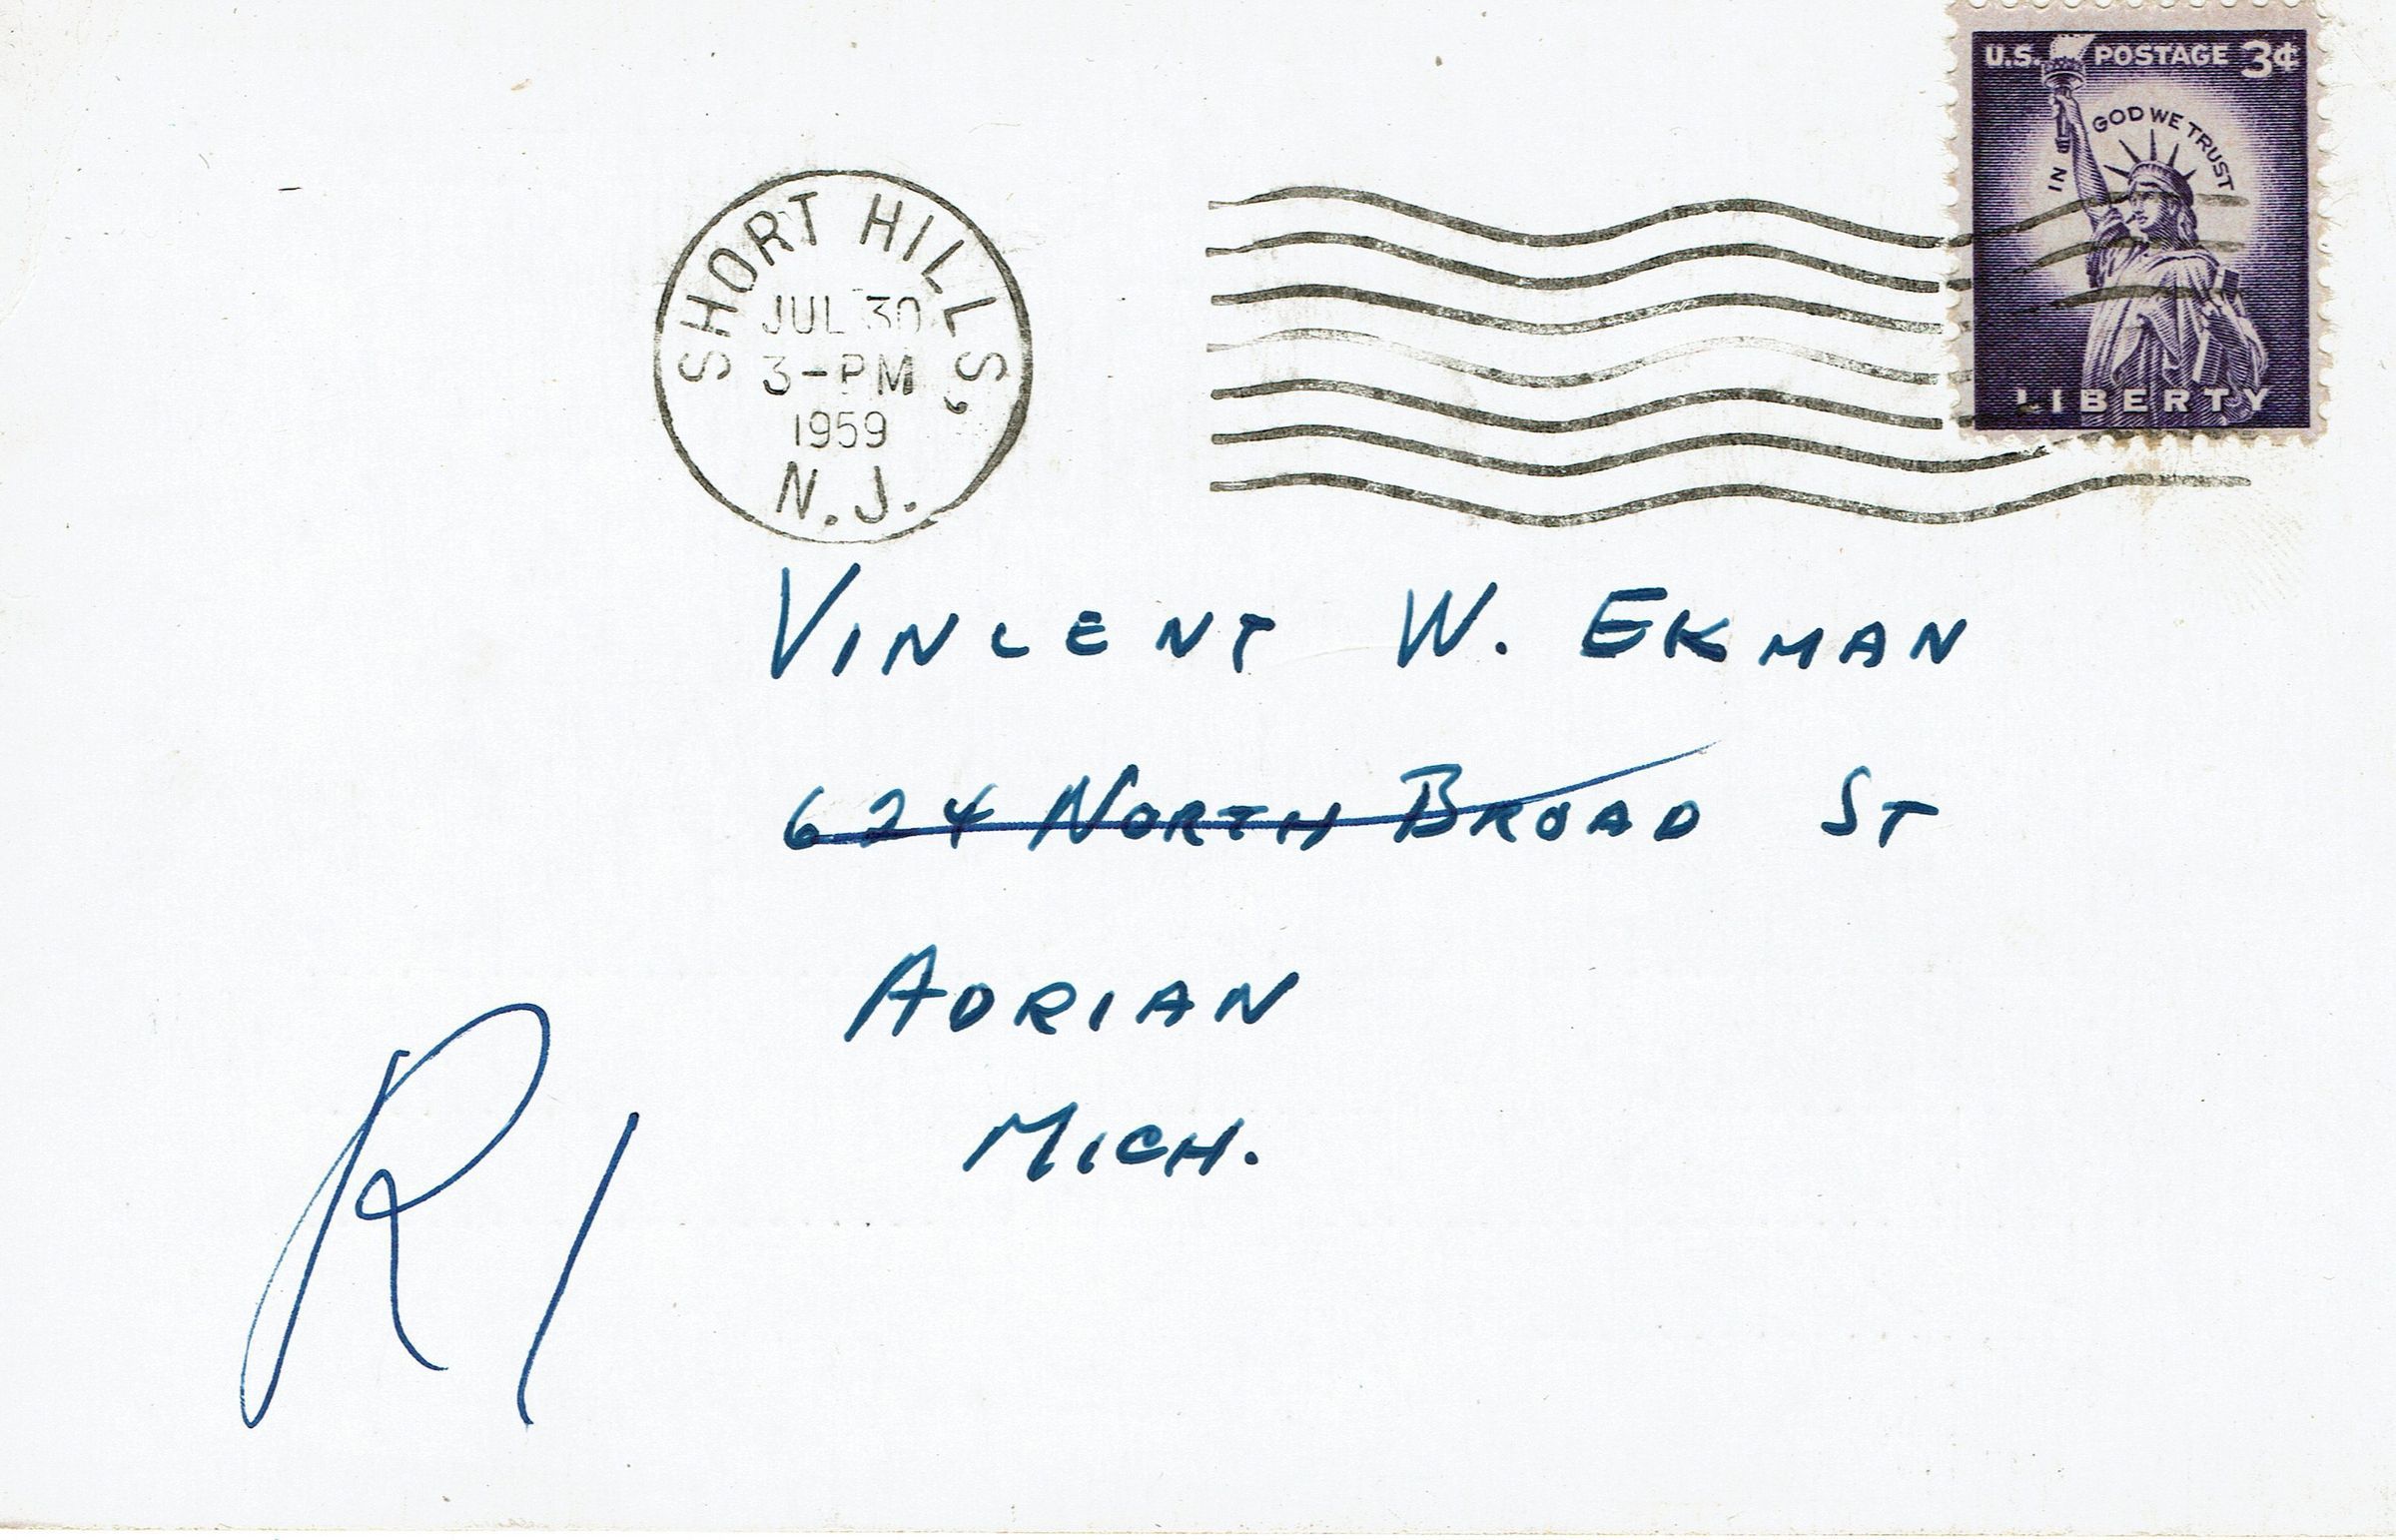 U.S. POSTAGE 3¢
IN GOD WE TRUST
LIBERTY
SHORT HILLS,
JUL 30
3-PM
1959
N.J.
VINCENT W. EKMAN
624 NORTH BROAD ST
ADRIAN
MICH.
R1